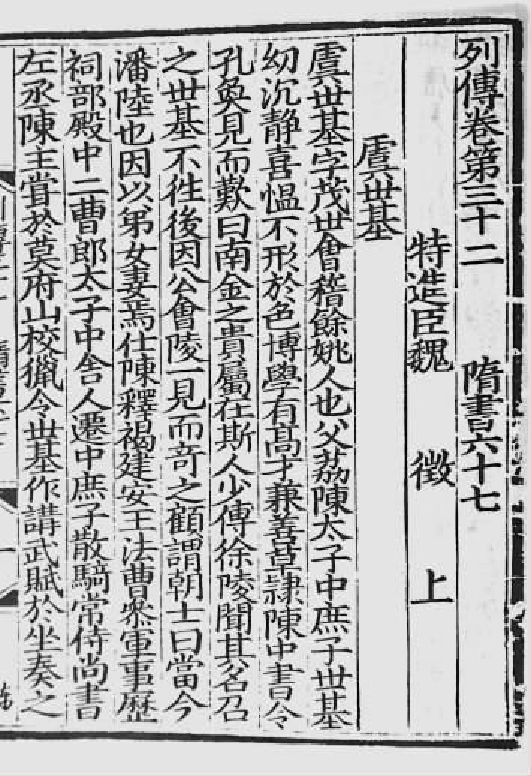 列傳卷第三十二　隋書六十七
特進臣魏　徵　上
虞世基
虞世基字茂世會稽餘姚人也父荔陳太子中庶子世基
幼沉静喜愠不形於色博學有髙才兼善草隷陳中書令
孔奐見而歎曰南金之貴屬在斯人少傳徐陵聞其名召
之世基不徃後因公會陵一見而竒之顧謂朝士曰當今
潘陸也因以弟女妻焉仕陳釋褐建安王法曹叅軍事歷
祠部殿中二曹郎太子中舍人遷中庶子散騎常侍尚書
左丞陳主甞於莫府山校獵令世基作講武賦於坐奏之